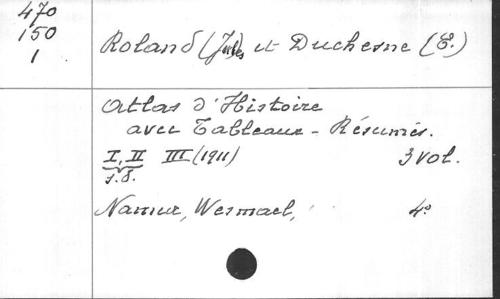 470
150
1
Roland (Jules) et Duchesne (E.)
Atlas d'Histoire
avec Tableaux - Résumés.
I, II III (1911) 3 vol.
s.d.
Namur, Wesmael, 4°